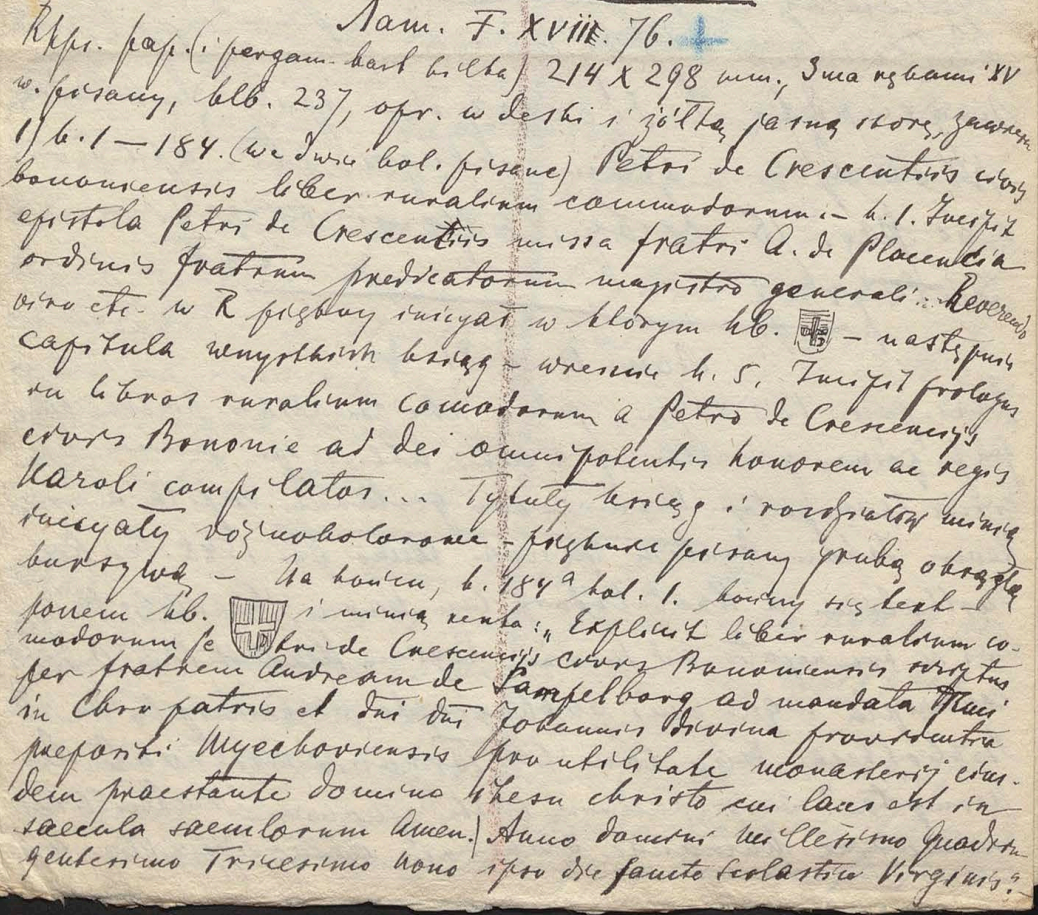 Łac. F. XVIII. 76.
Rkps. pap. (i pergam. kart kilka) 214 x 298 mm, 3ma rękami XV
w. pisany, klb. 237, opr. w deski i żółtą jasną skórę, zawiera
1) k. 1 — 184. (we dwie kol. pisane) Petri de Crescentiis civis
bononiensis liber ruralium commodorum. — k. 1. Incipit
epistola Petri de Crescentiis missa fratri A. de Placencia
ordinis fratrum predicatorum magistro generali... Reverendo
viro etc. w R piękny inicyał w którym hb. — następnie
capitula wszystkich ksiąg — wreszcie k. 5. Incipit prologus
in libros ruralium comodorum a Petro de Crescencijs
civis Bononie ad dei omnipotentis honorem ac regis
Karoli compilatos... Tytuły ksiąg i rozdziałów minią
inicyały różnokolorowe — pięknie pisany grubą okrągłą
kursywą — Na końcu, k. 184a kol. 1. kończy się tekst —
ponem hb. i minią ręka: „Explicit liber ruralium co-
modorum Petri de Crescencijs civis Bononiensis scriptus
per fratrem Andream de Sampelborg ad mandata
in Chro patris et dni dni Johannis divina providentia
prepositi Myechoviensis pro utilitate monasterij eius-
dem praestante domino Ihesu christo cui laus est in
saecula saeculorum Amen.) Anno domini Millesimo Quadrin-
gentesimo Tricesimo nono ipso die sancte Scolastice Virginis."